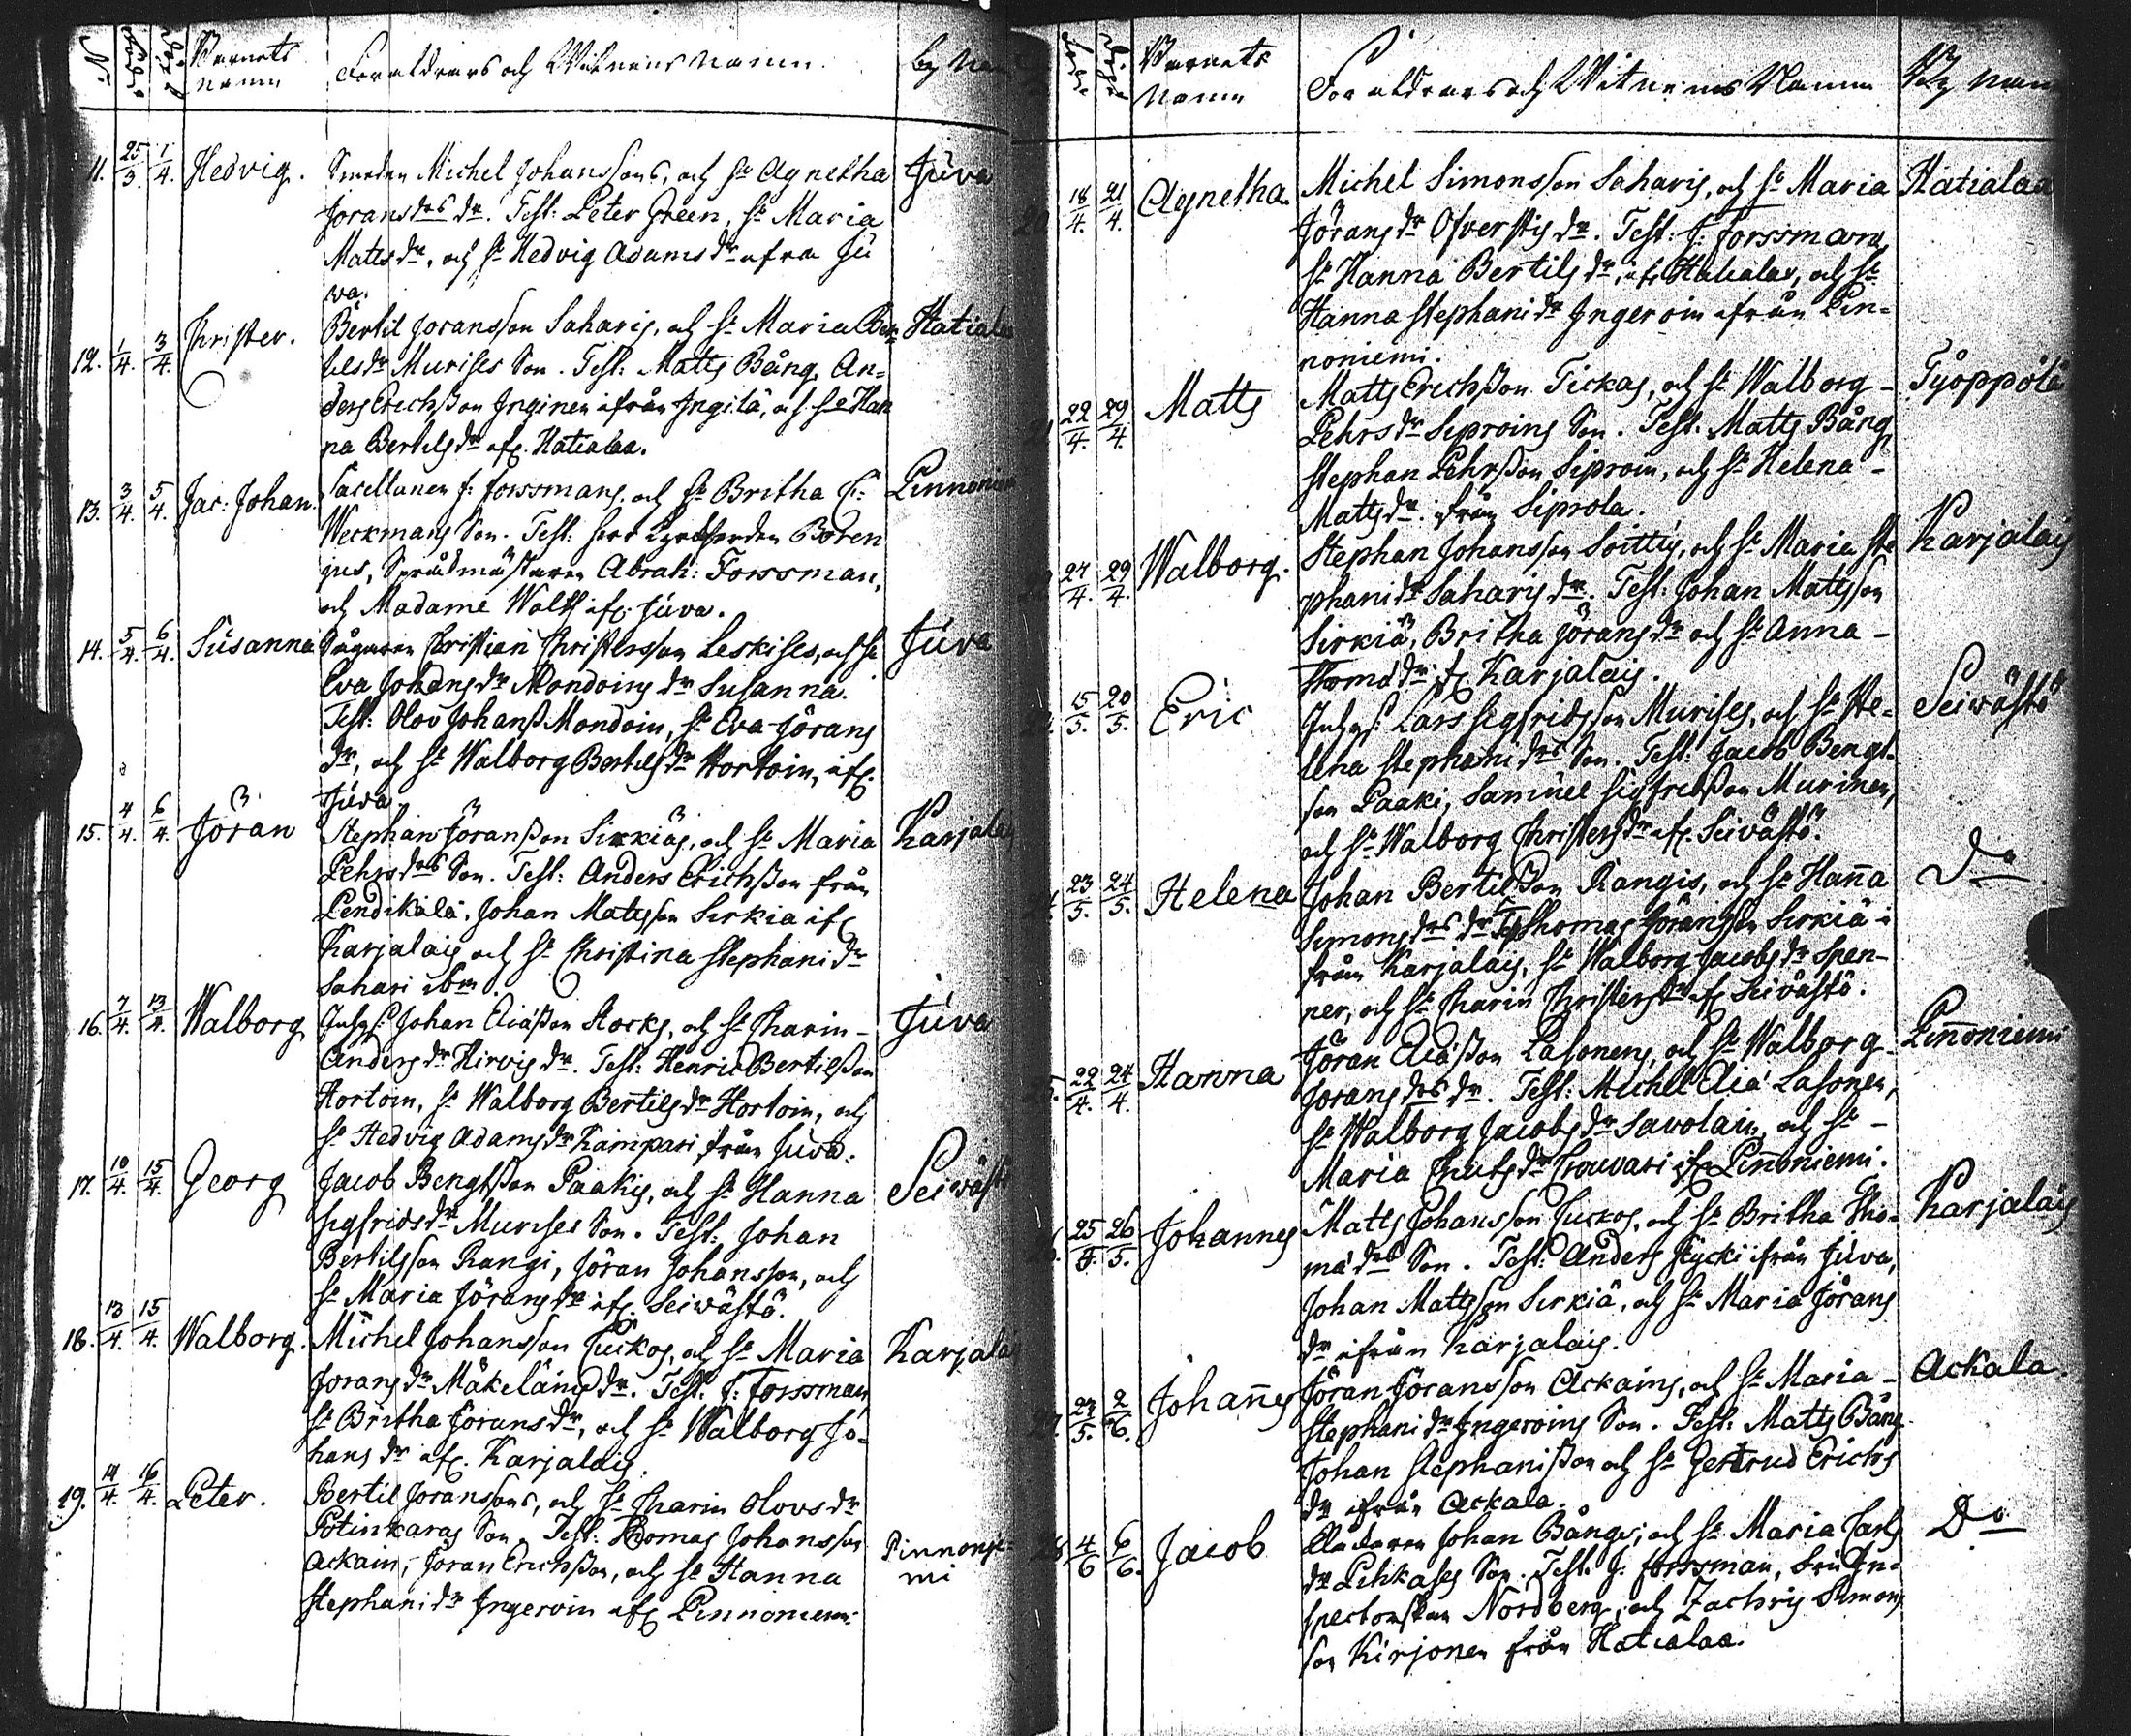 N:o Födde Döpte Barnets namn Föräldrars och Witnens namn. By Nam
11. 25/3 1/4. Hedvig. Smeden Michel Johanssons, och H: Agnetha Juva
Jörans drs dr. Test: Peter Green, H: Maria
Matts dr, och H: Hedvig Adams dr ifrån Ju
va.
12. 1/4. 3/4. Christer. Bertil Joransson Saharis, och H: Maria Ber Hatialaa
tels dr Murises Son. Test: Matts Bång, An=
ders Erichsson Inginen ifrån Ingilä, och H: Han
na Bertils dr ifr. Hatialaa.
13. 3/4. 5/4. Jac: Johan. Sacellanen J: Forssmans, och H: Britha C: Pinnoniem
Weckmans Son. Test: Herr Kyrkoherden Boren
ius, Språkmästaren Abrah: Forssman,
och Madame Wolff ifr. Juva.
14. 5/4. 6/4. Susanna Sågaren Christian Christersson Leskises, och H: Juva
Eva Johans dr Mondoins dr Susanna.
Test: Olov Johans Mondoin, H: Eva Jörans
dr, och H: Walborg Bertils dr Hortoin, ifr.
Juva
15. 4/4. 6/4. Jöran Stephan Jöransson Sirkiäs, och H: Maria Karjalais
Pehrs drs Son. Test: Anders Erichsson från
Pendikälä, Johan Mattsson Sirkiä ifr
Karjalais och H: Christina Stephani dr
Sahari ibm.
16. 7/4. 13/4. Walborg Inhys: Johan Eliæsson Stocks, och H: Charin - Juva
Anders dr Hirvis dr. Test: Henric Bertilsson
Hortoin, H: Walborg Bertils dr Hortoin, och
H: Hedvig Adams dr Kämpari från Juva.
17. 10/4. 15/4. Georg Jacob Bengtsson Paakis, och H: Hanna Seivästö
Sigfrids dr Murises Son. Test: Johan
Bertilsson Rangi, Jöran Johansson, och
H: Maria Jörans dr ifr. Seivästö.
18. 13/4. 15/4. Walborg. Michel Johansson Cuckos, och H: Maria Karjalais
Jorans dr Mäkeläins dr. Test: J: Forssman,
H: Britha Jörans dr, och H: Walborg Jo-
hans dr ifr. Karjalais.
19. 14/4. 16/4. Peter. Bertil Joranssons, och H: Charin Olovs dr
Potinkaras Son. Test: Thomas Johansson Pinnonie=
Ackain, Jöran Erichsson, och H: Hanna mi
Stephani dr Ingeroin ifr Pinnoniemi
Födde Döpte Barnets Namn Föräldrars och Witnens Namn By nam
20 18/4. 21/4. Agnetha Michel Simonsson Saharis, och H: Maria Hatialaa
Jörans dr Ofverstis dr. Test: J: Forssman,
H: Hanna Bertils dr ifr Hatialaa, och H:
Hanna Stephani dr Ingeroin ifrån Pin=
noniemi.
21 22/4. 29/4. Matts Matts Erichsson Tickas, och H: Walborg - Tyoppölä
Pehrs dr Siproins Son. Test: Matts Bång
Stephan Pehrsson Siproin, och H: Helena -
Matts dr. från Siprola.
24/4. 29/4. Walborg. Stephan Johansson Soittis, och H: Maria Ste Karjalais
phani dr Saharis dr. Test: Johan Mattsson
Sirkiä, Britha Jörans dr och H: Anna -
Thomæ dr ifr Karjalais.
15/5. 20/5. Eric Inhys: Lars Sigfridsson Murises, och H: He= Seivästö
lena Stephani drs Son. Test: Jacob Bengt=
son Paaki, Samuel Sigfridsson Murinen,
och H: Walborg Christers dr ifr. Seivästö.
24. 23/5. 24/5. Helena Johan Bertilsson Rangis, och H: Hanna Do
Simons drs dr Test Thomas Jöransson Sirkiä i
från Karjalais, H: Walborg Jacobs dr Span-
ner, och H: Charin Christers dr ifr Seivästö.
25. 22/4. 24/4. Hanna Jöran Eliæsson Lasonens, och H: Walborg - Pinnoniemi
Jorans drs dr. Test: Michel Eliæ Lasonen,
H: Walborg Jacobs dr Savolain, och H: -
Maria Knuts dr Crouvari ifr Pinnoniemi.
26. 25/5. 26/5. Johannes Matts Johansson Cuckos, och H: Britha Tho= Karjalais
mæ drs Son. Test: Anders Stycki ifrån Juva,
Johan Mattsson Sirkiä, och H: Maria Jörans
dr ifrån Karjalais.
27. 23/5. 2/6. Johannes Jöran Jöransson Ackains, och H: Maria - Ackala.
Stephani dr Ingeroins Son. Test: Matts Bång
Johan Stephanisson och H: Gertrud Erichs
dr ifrån Ackala.
28 4/6 6/6. Jacob Klockaren Johan Bångs, och H: Maria Carls Do
dr Pihkases Son. Test: J: Forssman, Fru In=
spectorskan Nordberg, och Zachris Simons
son Kirjonen från Hatialaa.